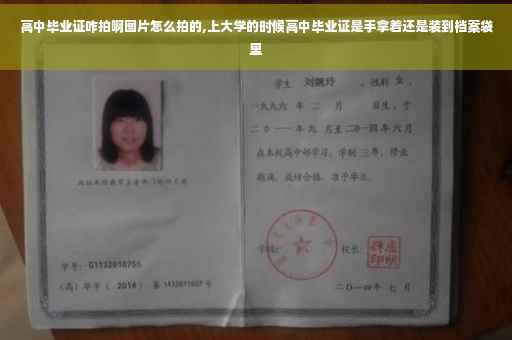 高中毕业证咋拍啊图片怎么拍的,上大学的时候高中毕业证是手拿着还是装到档案袋
里
学生 刘婉玲 ，性别 女 ，
一九九六 年 二 月 日生，于
二〇一一年九 月至二〇一四年 六 月
在本校高中部学习，学制 三年，修业
期满，成绩合格，准予毕业。
学校： 校长：
学号：G1132010755
（高）毕字（ 2014 ）第 1432011027 号
二〇一四年 七 月